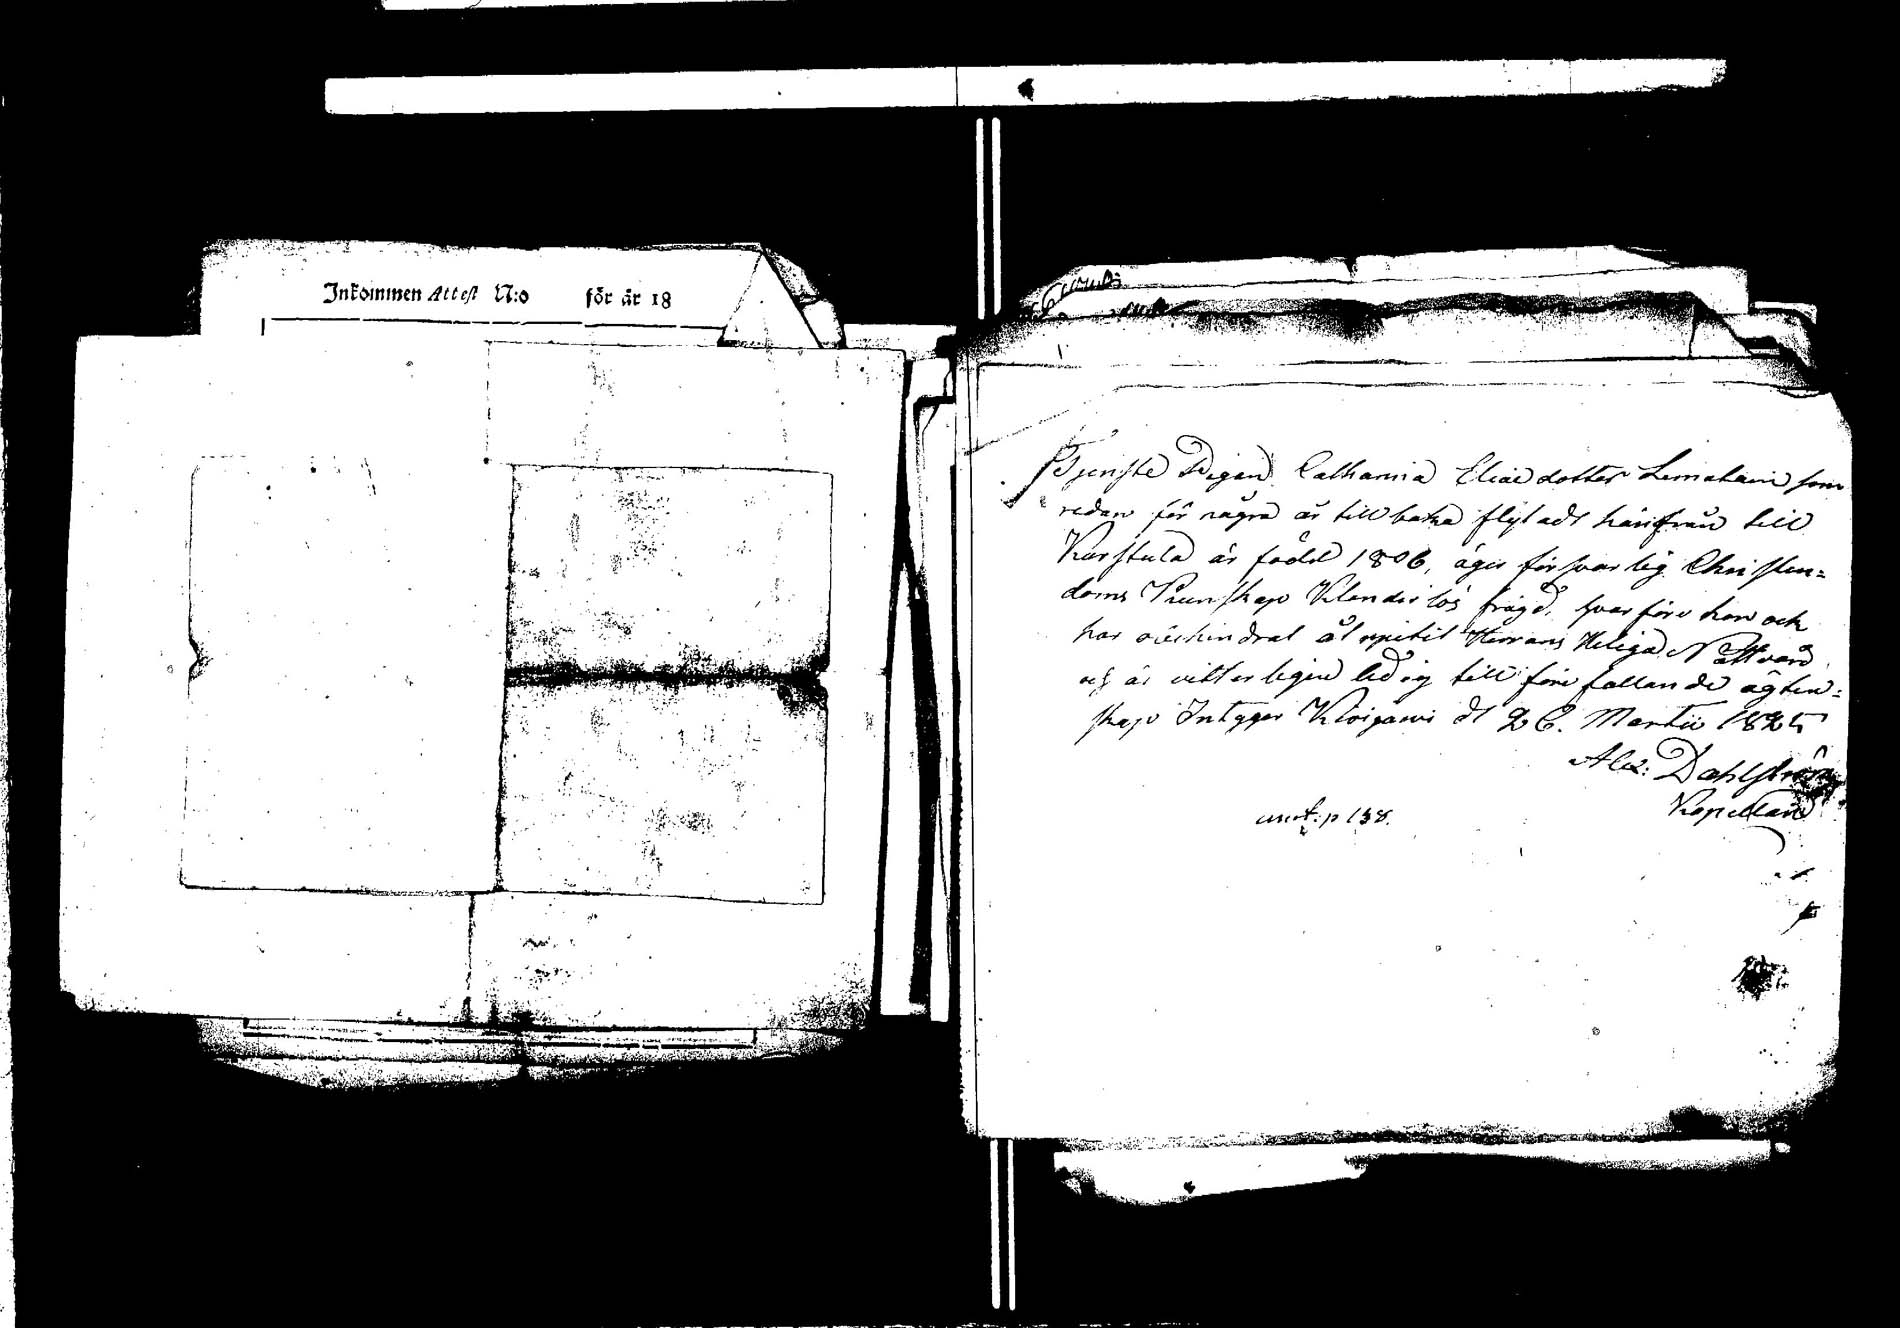 Inkommen Attest N:o för år 18
Tjenste Pigan Catharina Eliaedotter Lemetainen som
redan för några år tillbaka flyt adt härifrån till
Karstula är född 1806, äger försvarlig Christen=
doms Kunskap Klanderlös frägd, hvarföre hon och
har obehindrat åt njutit Herrans Heliga Nattvard
och är vitterligen ledig till före fallande ägten=
skap Intygar Kivijärvi dt 26. Martii 1825
Alex: Dahlström
Kapellan
p 138.